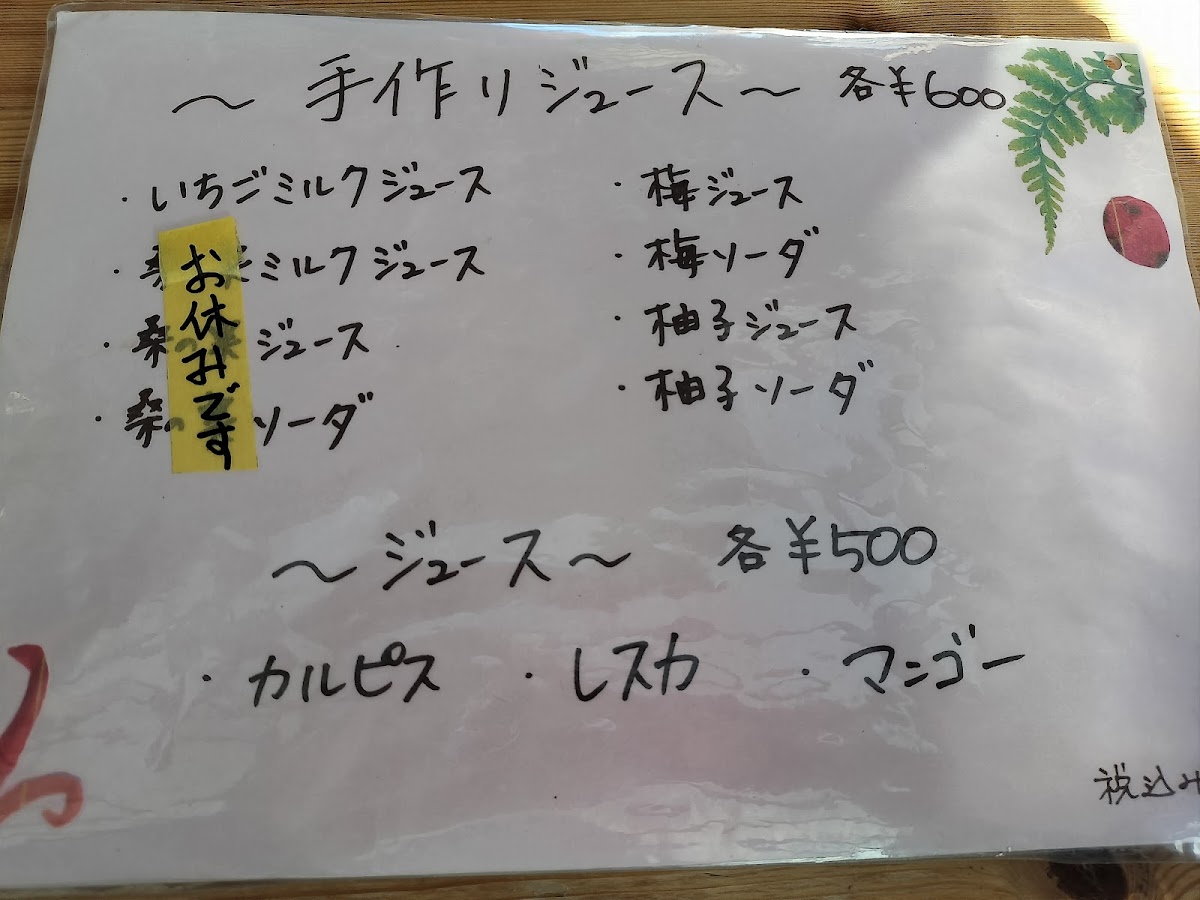 ～手作りジュース～ 各¥600
・いちごミルクジュース
・桑の実ミルクジュース
・桑の実ジュース
・桑の実ソーダ
お休みです
・梅ジュース
・梅ソーダ
・柚子ジュース
・柚子ソーダ
～ジュース～ 各¥500
・カルピス ・レスカ ・マンゴー
税込み